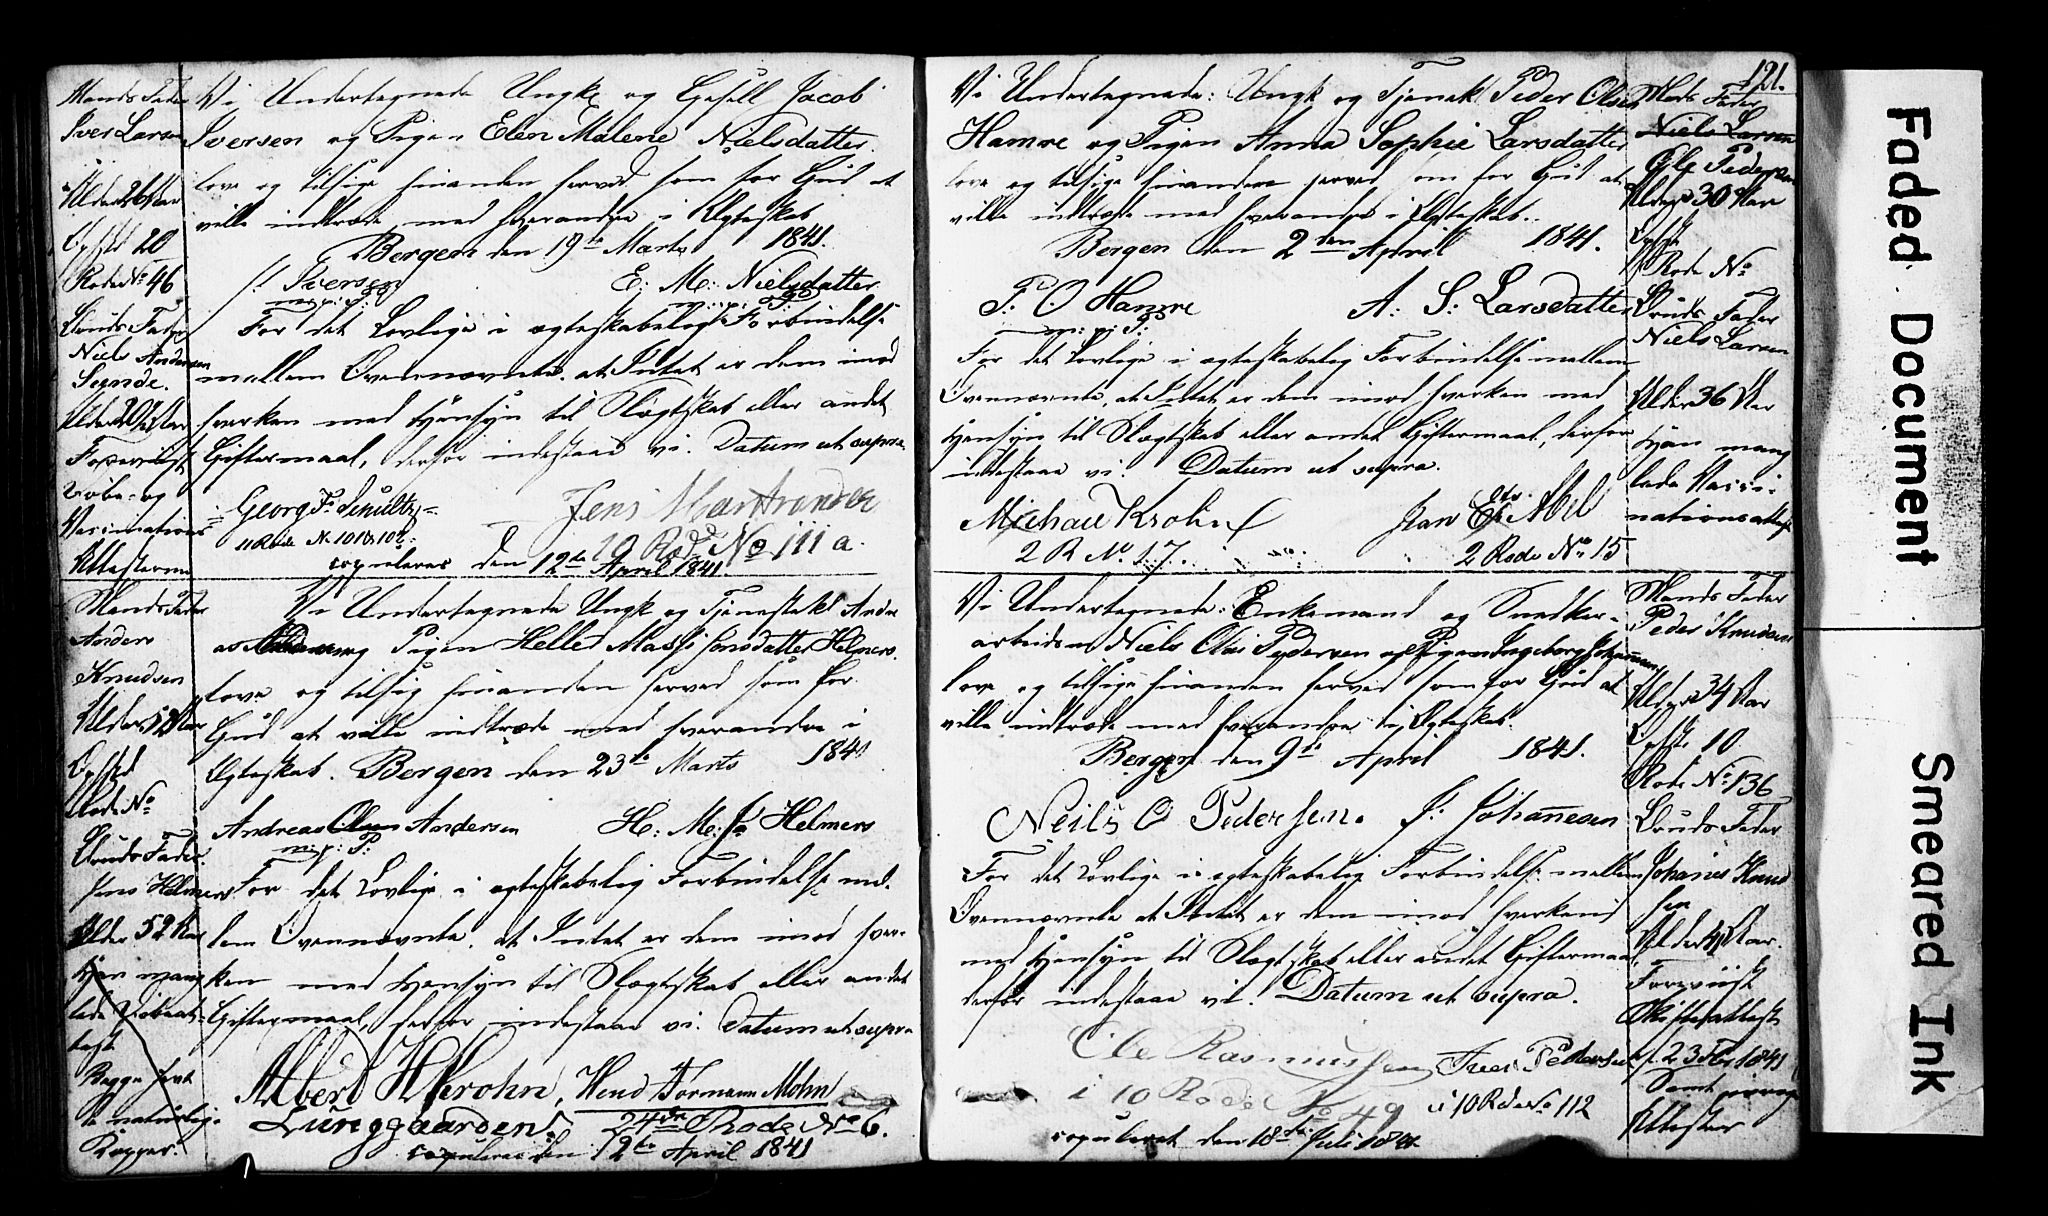 Mands Fader
Iver Larsen
Alder 26 Aar
Opsted 20
Rode No 46
Bruds Fader
Niels Andersen
Alder 20 Aar
Foreviist
Døbe- og
Vaccinations-
Attesterne
Vi Undertegnede Ungk. og Gesell Jacob
Iversen og Pigen Elen Malene Nielsdatter.
love og tilsige hinanden herved som for Gud at
ville indtræde med hverandre i Ægteskab
Bergen den 19de Marts 1841.
Iversen E: M: Nielsdatter
m: p: P: m: p: P:
For det Lovlige i ægteskabelig Forbindelse
mellem Ovennævnte, at Intet er dem imod
hverken med Hensyn til Slægtskab eller andet
Giftermaal, derfor indestaae vi. Datum ut supra
Georg F. Schultz Jens
19 Rode No 111 a.
copuleret den 12te April 1841.
Mands Fader
Anders
Knudsen
Alder
Opsted
Rode No
Bruds Fader
Jens Helmers
Alder 52 Aar
Han mang
lede Døbeat-
test
Begge havt
de naturlige
Kopper.
Vi Undertegnede Ungk og Tjenestekl Andre
as og Pigen Helle Massi Jonsdatter Helmers.
love og tilsig hinanden herved som for
Gud at ville indtræde med hverandre i
Ægteskab. Bergen den 23de Marts 1841
Andreas Andersen H: M: J: Helmers
m: p: P:
For det Lovlige i ægteskabelig Forbindelse mel-
lem Ovennævnte, at Intet er dem imod hver-
ken med Hensyn til Slægtskab eller andet
Giftermaal, derfor indestaae vi. Datum ut supra
Albert H Krohn, Wend Formann Mohn
Lunggaarden 24de Rode No 6.
copuleret den 12te April 1841
121.
Vi Undertegnede: Ungk og Tjenestk Peder Olsen
Hamre og Pigen Anna Sophie Larsdatter
love og tilsige hinanden herved som for Gud at
ville indtræde med hverandre i Ægteskab.
Bergen den 2den April 1841.
P: O Hamre A: S: Larsdatter
m: p: P:
For det Lovlige i ægteskabelig Forbindelse mellem
Ovennævnte, at Intet er dem imod hverken med
Hensyn til Slægtskab eller andet Giftermaal, derfor
indestaae vi. Datum ut supra.
Michael Krohn Abel
2 R No 17. 2 Rode No 15
Mands Fader
Niels Larsen
Ole Pedersen
Alder 30 Aar
Opsted
Rode No
Bruds Fader
Niels Larsen
Alder 36 Aar
Han mang
lede Vacci-
nationsattest
Vi Undertegnede: Enkemand og Snedker-
arbeider Niels Olai Pedersen og Pigen Ingeborg Johannesen
love og tilsige hinanden herved som for Gud at
ville indtræde med hverandre i Ægteskab
Bergen den 9de April 1841.
Neils O Pedersen. J: Johanesen
For det Lovlige i ægteskabelig Forbindelse mellem
Ovennævnte at Intet er dem imod hverken
med Hensyn til Slægtskab eller andet Giftermaal
derfor indestaae vi. Datum ut supra.
Ole Rasmussen Iver Pedersen
i 10 Rode No 49 i 10 Rode No 112
copuleret den 18de Juli 1841.
Mands Fader
Peder Knudsen
Alder 34 Aar
Opsted 10
Rode No 136
Bruds Fader
Johanes Knud
sen
Alder 41 Aar.
Foreviist
Skifteattest
af 23 1841
Samt øvrige
Attester
Faded Document
Smeared Ink